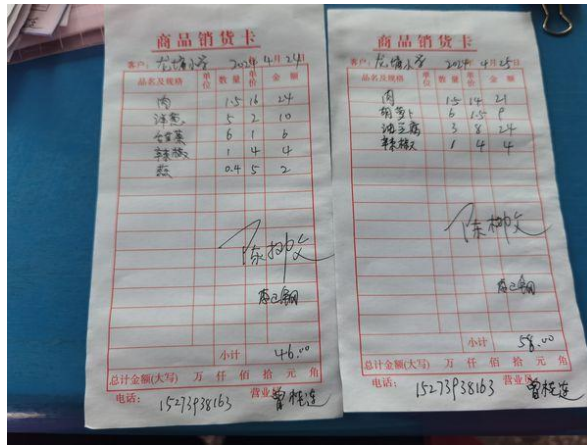 商品销货卡
客户：龙塘小学 2024年4月24日
品名及规格 单位 数量 单价 金额
肉 1.5 16 24
洋葱 5 2 10
6 1 6
辣椒 1 4 4
0.4 5 2
小计 46.00
总计金额(大写) 万 仟 佰 拾 元 角
电话：15273938163 营业员 曾桂莲
商品销货卡
客户：龙塘小学 2024年4月25日
品名及规格 单位 数量 单价 金额
肉 1.5 14 21
胡萝卜 6 1.5 9
油豆腐 3 8 24
辣椒 1 4 4
小计 58.00
总计金额(大写) 万 仟 佰 拾 元 角
电话：15273938163 营业员 曾桂莲